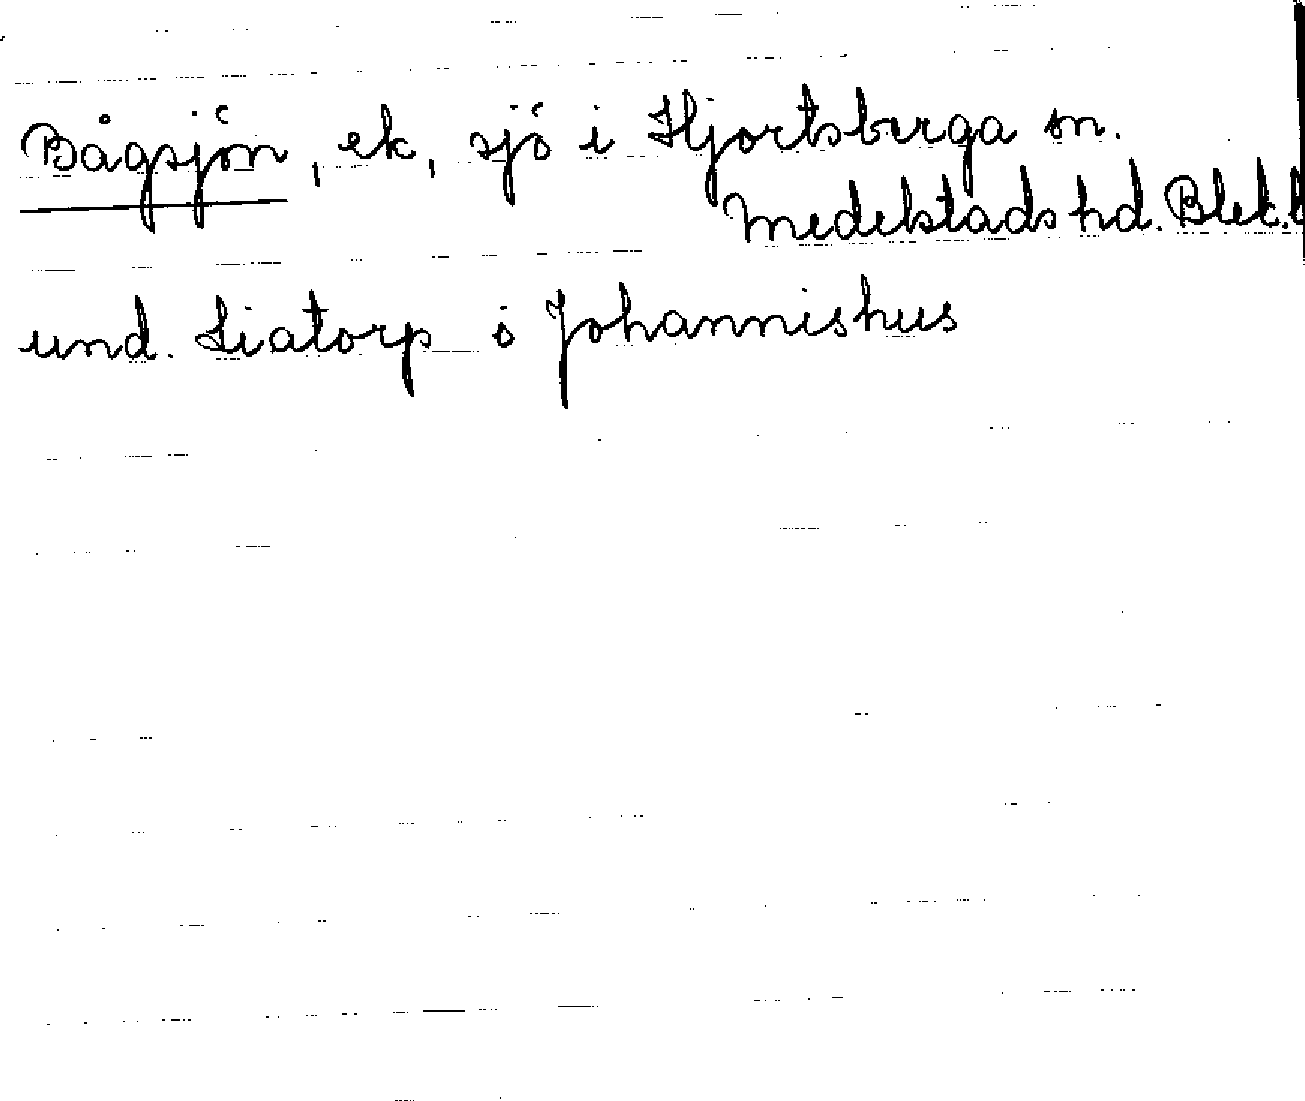 Bågsjön, ek, sjö i Hjortsberga sn.
Medelstads hd. Blek. l
und. Liatorp o Johannishus